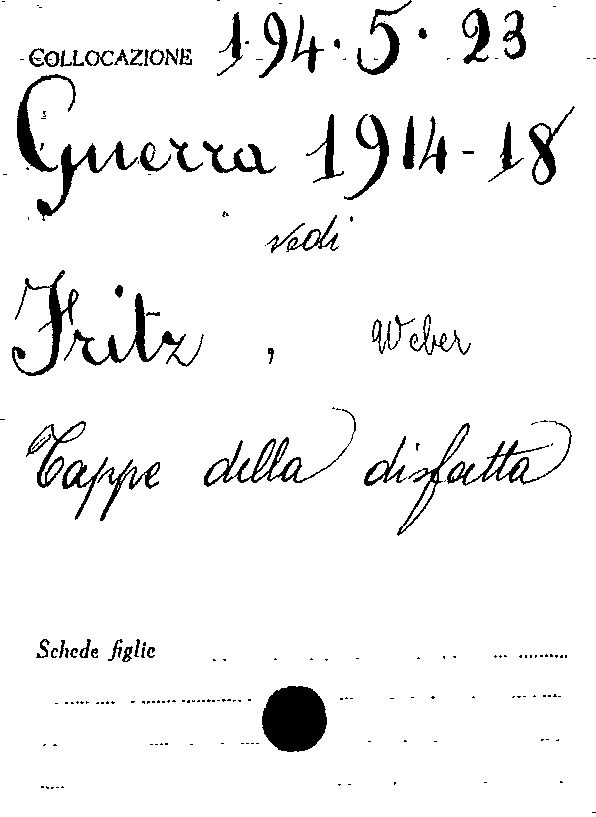 COLLOCAZIONE 194.5.23
Guerra 1914-18
vedi
Fritz, Weber
Tappe della disfatta
Schede figlie